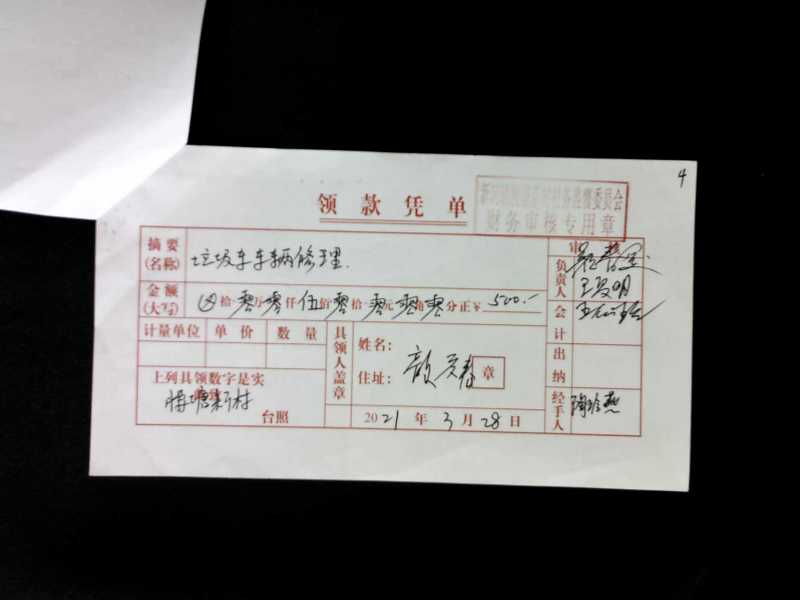 4
领款凭单
村务监督委员会
财务审核专用章
摘要(名称) 垃圾车车辆修理.
审
负责人
金额(大写) 拾零万零仟伍佰零拾零元零角零分正¥500.-
会计
计量单位 单价 数量
具领人盖章
姓名:
住址:
章
出纳
上列具领数字是实
塘新村
台照
2021年3月28日
经手人